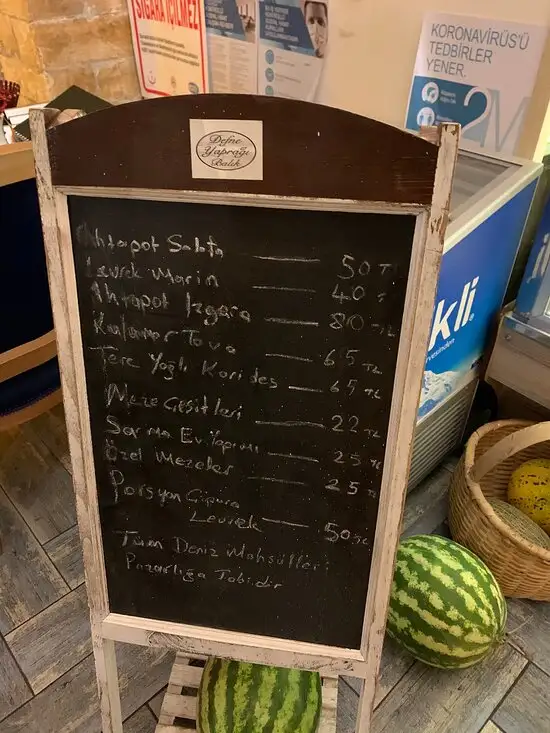 SİGARA İÇİLMEZ
KORONAVİRÜS'Ü
TEDBİRLER
YENER.
2M
Defne
Yaprağı
Balık
Ahtapot Salata 50 TL
Levrek Marin 40 TL
Ahtapot Izgara 80 TL
Kalamar Tava 65 TL
Tere Yağlı Karides 65 TL
Meze Çeşitleri 22 TL
Sarma Ev Yapımı 25 TL
Özel Mezeler 25 TL
Porsyon Çipura
Levrek 50 TL
Tüm Deniz Mahsülleri
Pazarlığa Tabidir
kli